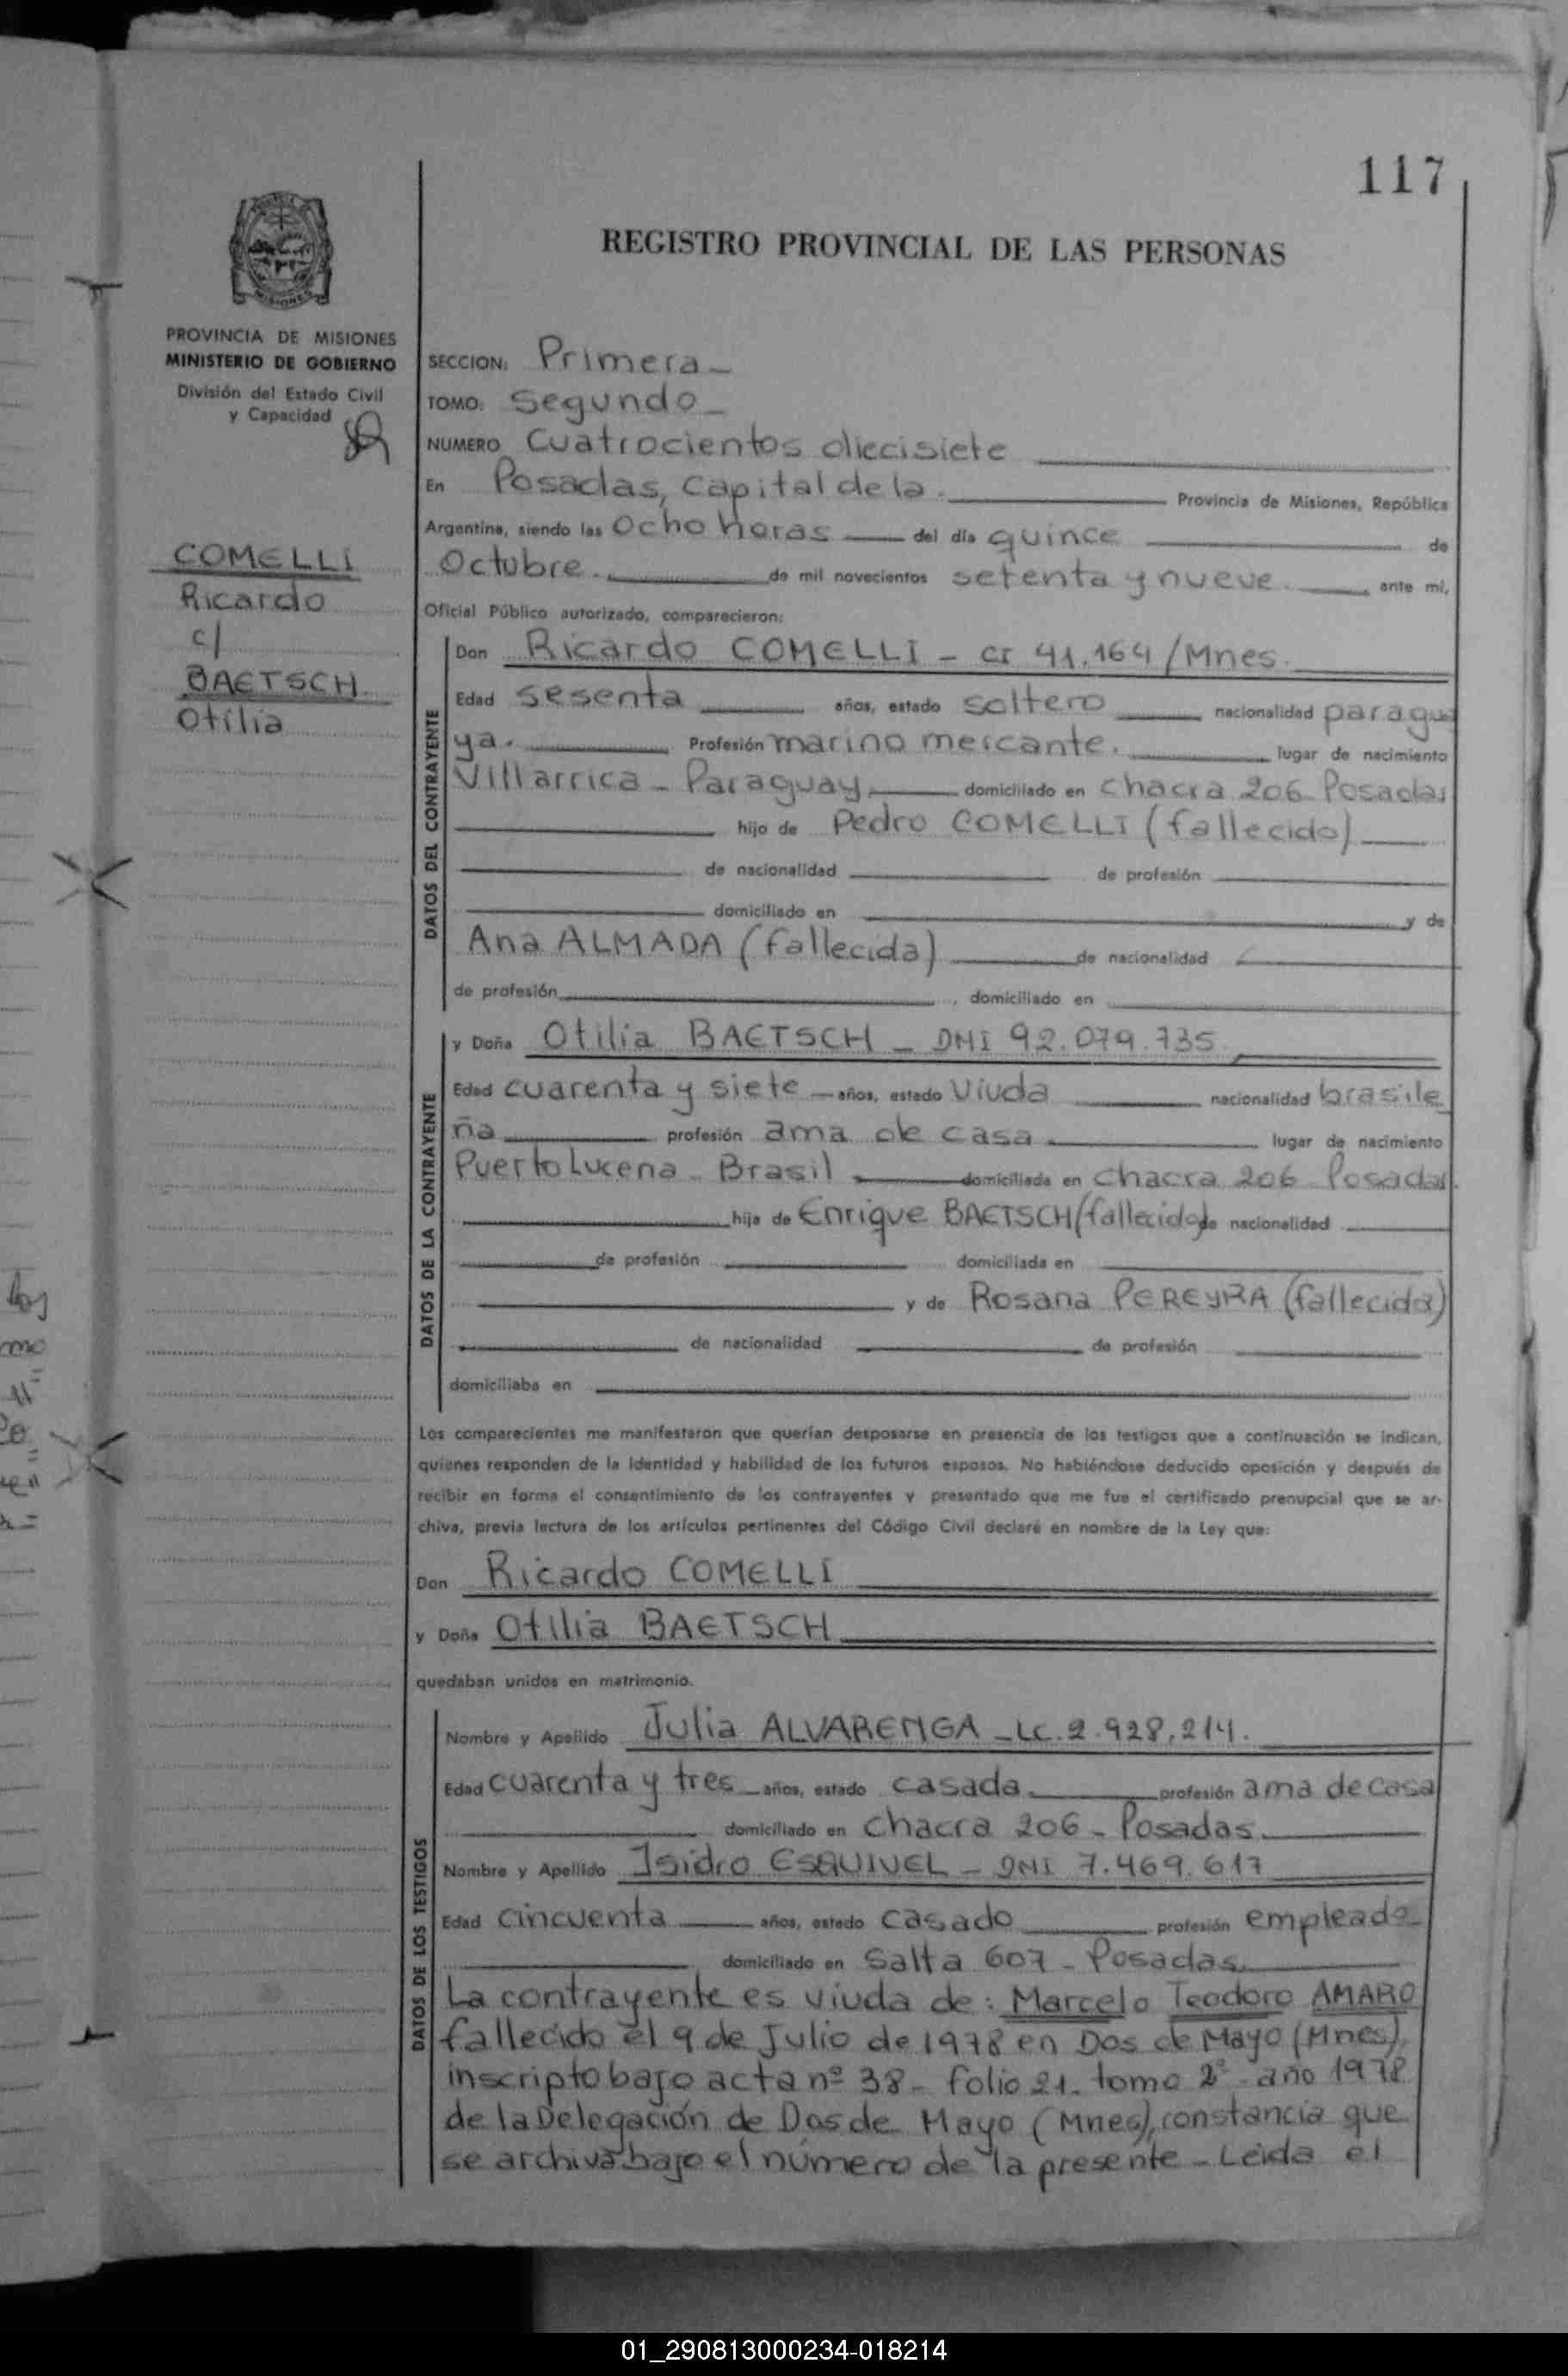 117
REGISTRO PROVINCIAL DE LAS PERSONAS
MISIONES
PROVINCIA DE MISIONES
MINISTERIO DE GOBIERNO
División del Estado Civil
y Capacidad
COMELLI
Ricardo
c/
BAETSCH
Otilia
SECCION: Primera
TOMO: Segundo
NUMERO Cuatrocientos diecisiete
En Posadas, Capital de la. Provincia de Misiones, República
Argentina, siendo las Ocho horas del día quince de
Octubre. de mil novecientos setenta y nueve. ante mí,
Oficial Público autorizado, comparecieron:
DATOS DEL CONTRAYENTE
Don Ricardo COMELLI - CI 41.164/Mnes.
Edad sesenta años, estado soltero nacionalidad paragua
ya. Profesión marino mercante. lugar de nacimiento
Villarrica - Paraguay domiciliado en chacra 206 Posadas
hijo de Pedro COMELLI (fallecido)
de nacionalidad de profesión
domiciliado en y de
Ana ALMADA (fallecida) de nacionalidad
de profesión , domiciliado en
DATOS DE LA CONTRAYENTE
y Doña Otilia BAETSCH - DNI 92.079.735
Edad cuarenta y siete años, estado Viuda nacionalidad brasile
ña profesión ama de casa lugar de nacimiento
Puerto Lucena - Brasil domiciliada en chacra 206 Posadas
hija de Enrique BAETSCH (fallecido) de nacionalidad
de profesión domiciliada en
y de Rosana PEREYRA (fallecida)
de nacionalidad de profesión
domiciliaba en
Los comparecientes me manifestaron que querían desposarse en presencia de los testigos que a continuación se indican,
quienes responden de la identidad y habilidad de los futuros esposos. No habiéndose deducido oposición y después de
recibir en forma el consentimiento de los contrayentes y presentado que me fue el certificado prenupcial que se ar-
chiva, previa lectura de los artículos pertinentes del Código Civil declaré en nombre de la Ley que:
Don Ricardo COMELLI
y Doña Otilia BAETSCH
quedaban unidos en matrimonio.
DATOS DE LOS TESTIGOS
Nombre y Apellido Julia ALVARENGA - LC. 2.928.214.
Edad cuarenta y tres años, estado casada profesión ama de casa
domiciliado en chacra 206 - Posadas
Nombre y Apellido Isidro ESQUIVEL - DNI 7.469.617
Edad cincuenta años, estado casado profesión empleado
domiciliado en Salta 607 - Posadas
La contrayente es viuda de: Marcelo Teodoro AMARO
fallecido el 9 de Julio de 1978 en Dos de Mayo (Mnes),
inscripto bajo acta nº 38 - folio 21 - tomo 2º - año 1978
de la Delegación de Dos de Mayo (Mnes), constancia que
se archiva bajo el número de la presente - Leída el
01_290813000234-018214